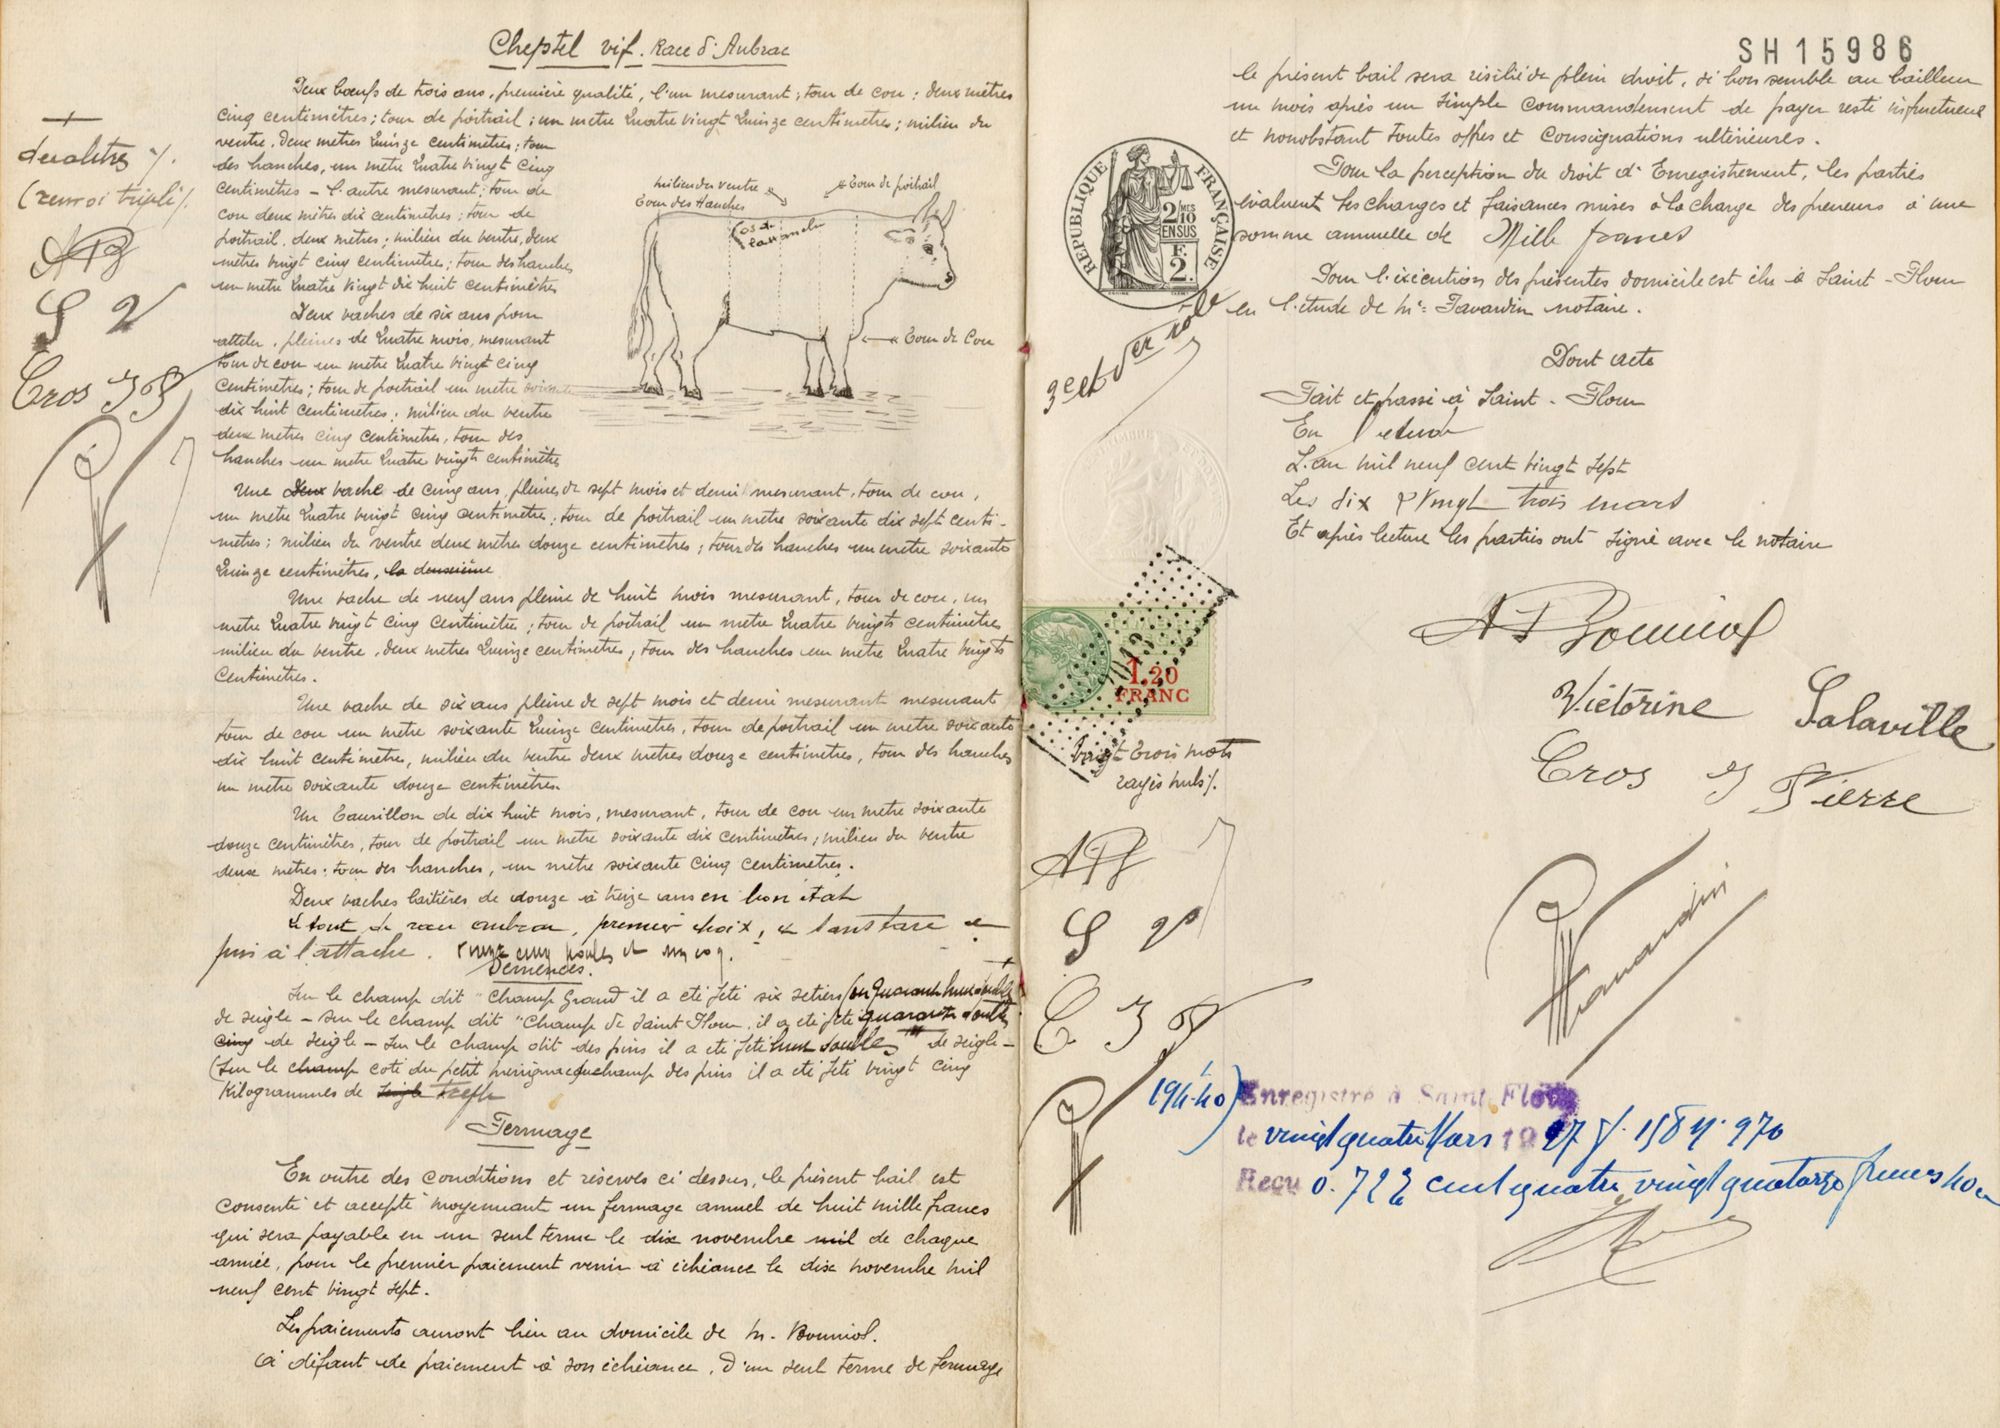 Cheptel vif. Race d'Aubrac
Deux bœufs de trois ans, première qualité, l'un mesurant ; tour de cou : deux mètres
cinq centimètres ; tour de poitrail ; un metre quatre vingt quinze centimètres ; milieu du
ventre, deux mètres quinze centimètres ; tour
des hanches, un mètre quatre vingt cinq
centimètres – l'autre mesurant : tour de
cou deux mètres dix centimètres ; tour de
poitrail, deux metres ; milieu du ventre, deux
mètres vingt cinq centimètres ; tour des hanches
un metre quatre vingt dix huit centimètres
Deux vaches de six ans pour
atteler, pleines de quatre mois, mesurant
tour de cou un metre quatre vingt cinq
centimètres ; tour de poitrail un metre soixante
dix huit centimètres ; milieu du ventre
deux metres cinq centimètres, tour des
hanches un metre quatre vingts centimètres
Une Deux vache de cinq ans, pleines de sept mois et demi mesurant, tour de cou,
un metre quatre vingt cinq centimetres ; tour de poitrail un metre soixante dix sept centi-
metres ; milieu du ventre deux metres douze centimètres ; tour des hanches un metre soixante
quinze centimètres, la deuxième
Une vache de neuf ans pleine de huit mois mesurant, tour de cou, un
metre quatre vingt cinq centimètres ; tour de poitrail un metre quatre vingts centimètres
milieu du ventre, deux mètres quinze centimètres, tour des hanches un metre quatre vingts
centimètres.
Une vache de six ans pleine de sept mois et demi mesurant mesurant
tour de cou un metre soixante quinze centimetres, tour de poitrail un metre soixante
dix huit centimetres, milieu du ventre deux metres douze centimetres, tour des hanches
un metre soixante douze centimètres
Un Taurillon de dix huit mois, mesurant, tour de cou un metre soixante
douze centimètres, tour de poitrail un metre soixante dix centimetres ; milieu du ventre
deux metres ; tour des hanches, un mètre soixante cinq centimetres.
Deux vaches laitières de douze à treize ans en bon état
Le tout de race aubrac, premier choix, & sans tare
pris à l'attache. cinq poules et un coq.
Semences.
Sur le champ dit "Champ Grand il a été jeté six setiers (ou quarante huit
de seigle – sur le champ dit "Champ de Saint Flour, il a été jeté quarante
cinq de seigle – sur le champ dit des pins il a été jeté de seigle –
(sur le champ coté du petit champ des pins il a été jeté vingt cinq
Kilogrammes de seigle trefle
Fermage
En outre des conditions et réserves ci dessus, le présent bail est
consenti et accepté moyennant un fermage annuel de huit mille francs
qui sera payable en un seul terme le dix novembre mil de chaque
année, pour le premier paiement venir à échéance le dix novembre mil
neuf cent vingt sept.
Les paiements auront lieu au domicile de M. Bouniol.
à défaut de paiement à son échéance, d'un seul terme de fermage
decalitres
(renvoi
APB
S V
Cros JP
milieu du ventre
Tour des Hanches
Tour de poitrail
os de
la hanche
Tour de Cou
SH15986
le présent bail sera résilié de plein droit, si bon semble au bailleur
un mois après un simple commandement de payer resté infructueux
et nonobstant toutes offres et consignations ultérieures.
Pour la perception du droit d'Enregistrement, les parties
évaluent les charges et faisances mises à la charge des preneurs à une
somme annuelle de Mille francs
Pour l'exécution des présentes domicile est élu à Saint-Flour
en l'étude de Me Tavardin notaire.
Dont acte
Fait et passé à Saint-Flour
En l'étude
L'an mil neuf cent vingt sept
Les dix & vingt trois mars
Et après lecture les parties ont signé avec le notaire
RÉPUBLIQUE FRANÇAISE
2/MES
10
EN SUS
F.
2.
3e et der rôle
1.20
FRANC
vingt trois mots
rayés nuls
APB
S V
C JP
A P Bouniol
Victorine Salaville
Cros J Pierre
Tavardin
194.40)
Enregistré à Saint-Flour
le vingt quatre Mars 1927 f. 158 N. 970
Reçu 0.722 cent quatre vingt quatorze francs 40c